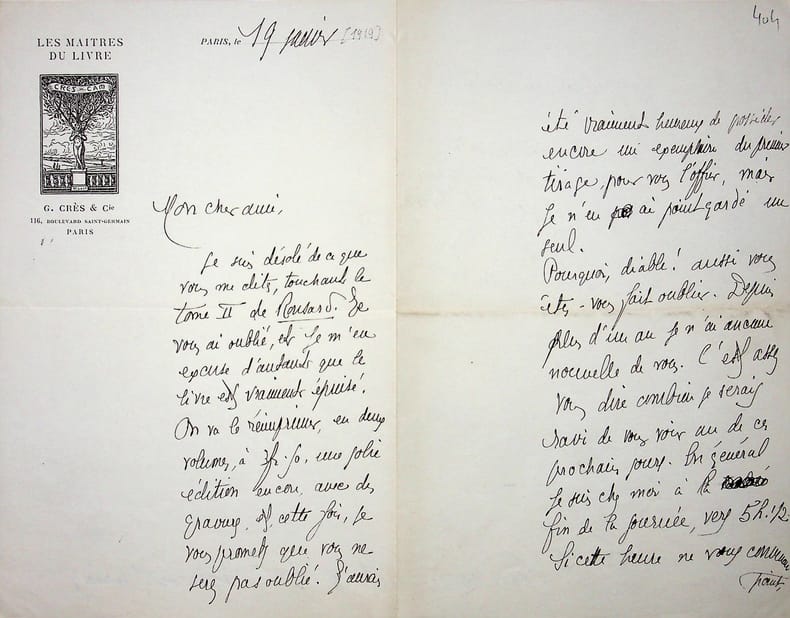 LES MAITRES
DU LIVRE
CRES CAM
G. CRÈS & Cie
116, BOULEVARD SAINT-GERMAIN
PARIS
PARIS, le 19 janvier [1919]
Mon cher ami,
Je suis désolé de ce que
vous me dites, touchant le
tome II de Ronsard. Je
vous ai oublié, et je m'en
excuse d'autant que le
livre est vraiment épuisé.
On va le réimprimer, en deux
volumes, à 3f.50, une jolie
édition encore, avec des
gravures, et, cette fois, je
vous promets que vous ne
serez pas oublié. J'aurais
404
été vraiment heureux de posséder
encore un exemplaire du premier
tirage, pour vous l'offrir, mais
je n'en ai point gardé un
seul.
Pourquoi, diable! aussi vous
êtes-vous fait oublier. Depuis
plus d'un an je n'ai aucune
nouvelle de vous. C'est assez
vous dire combien je serais
ravi de vous voir un de ces
prochains jours. En général
je suis chez moi à la
fin de la journée, vers 5h.1/2
Si cette heure ne vous convenait